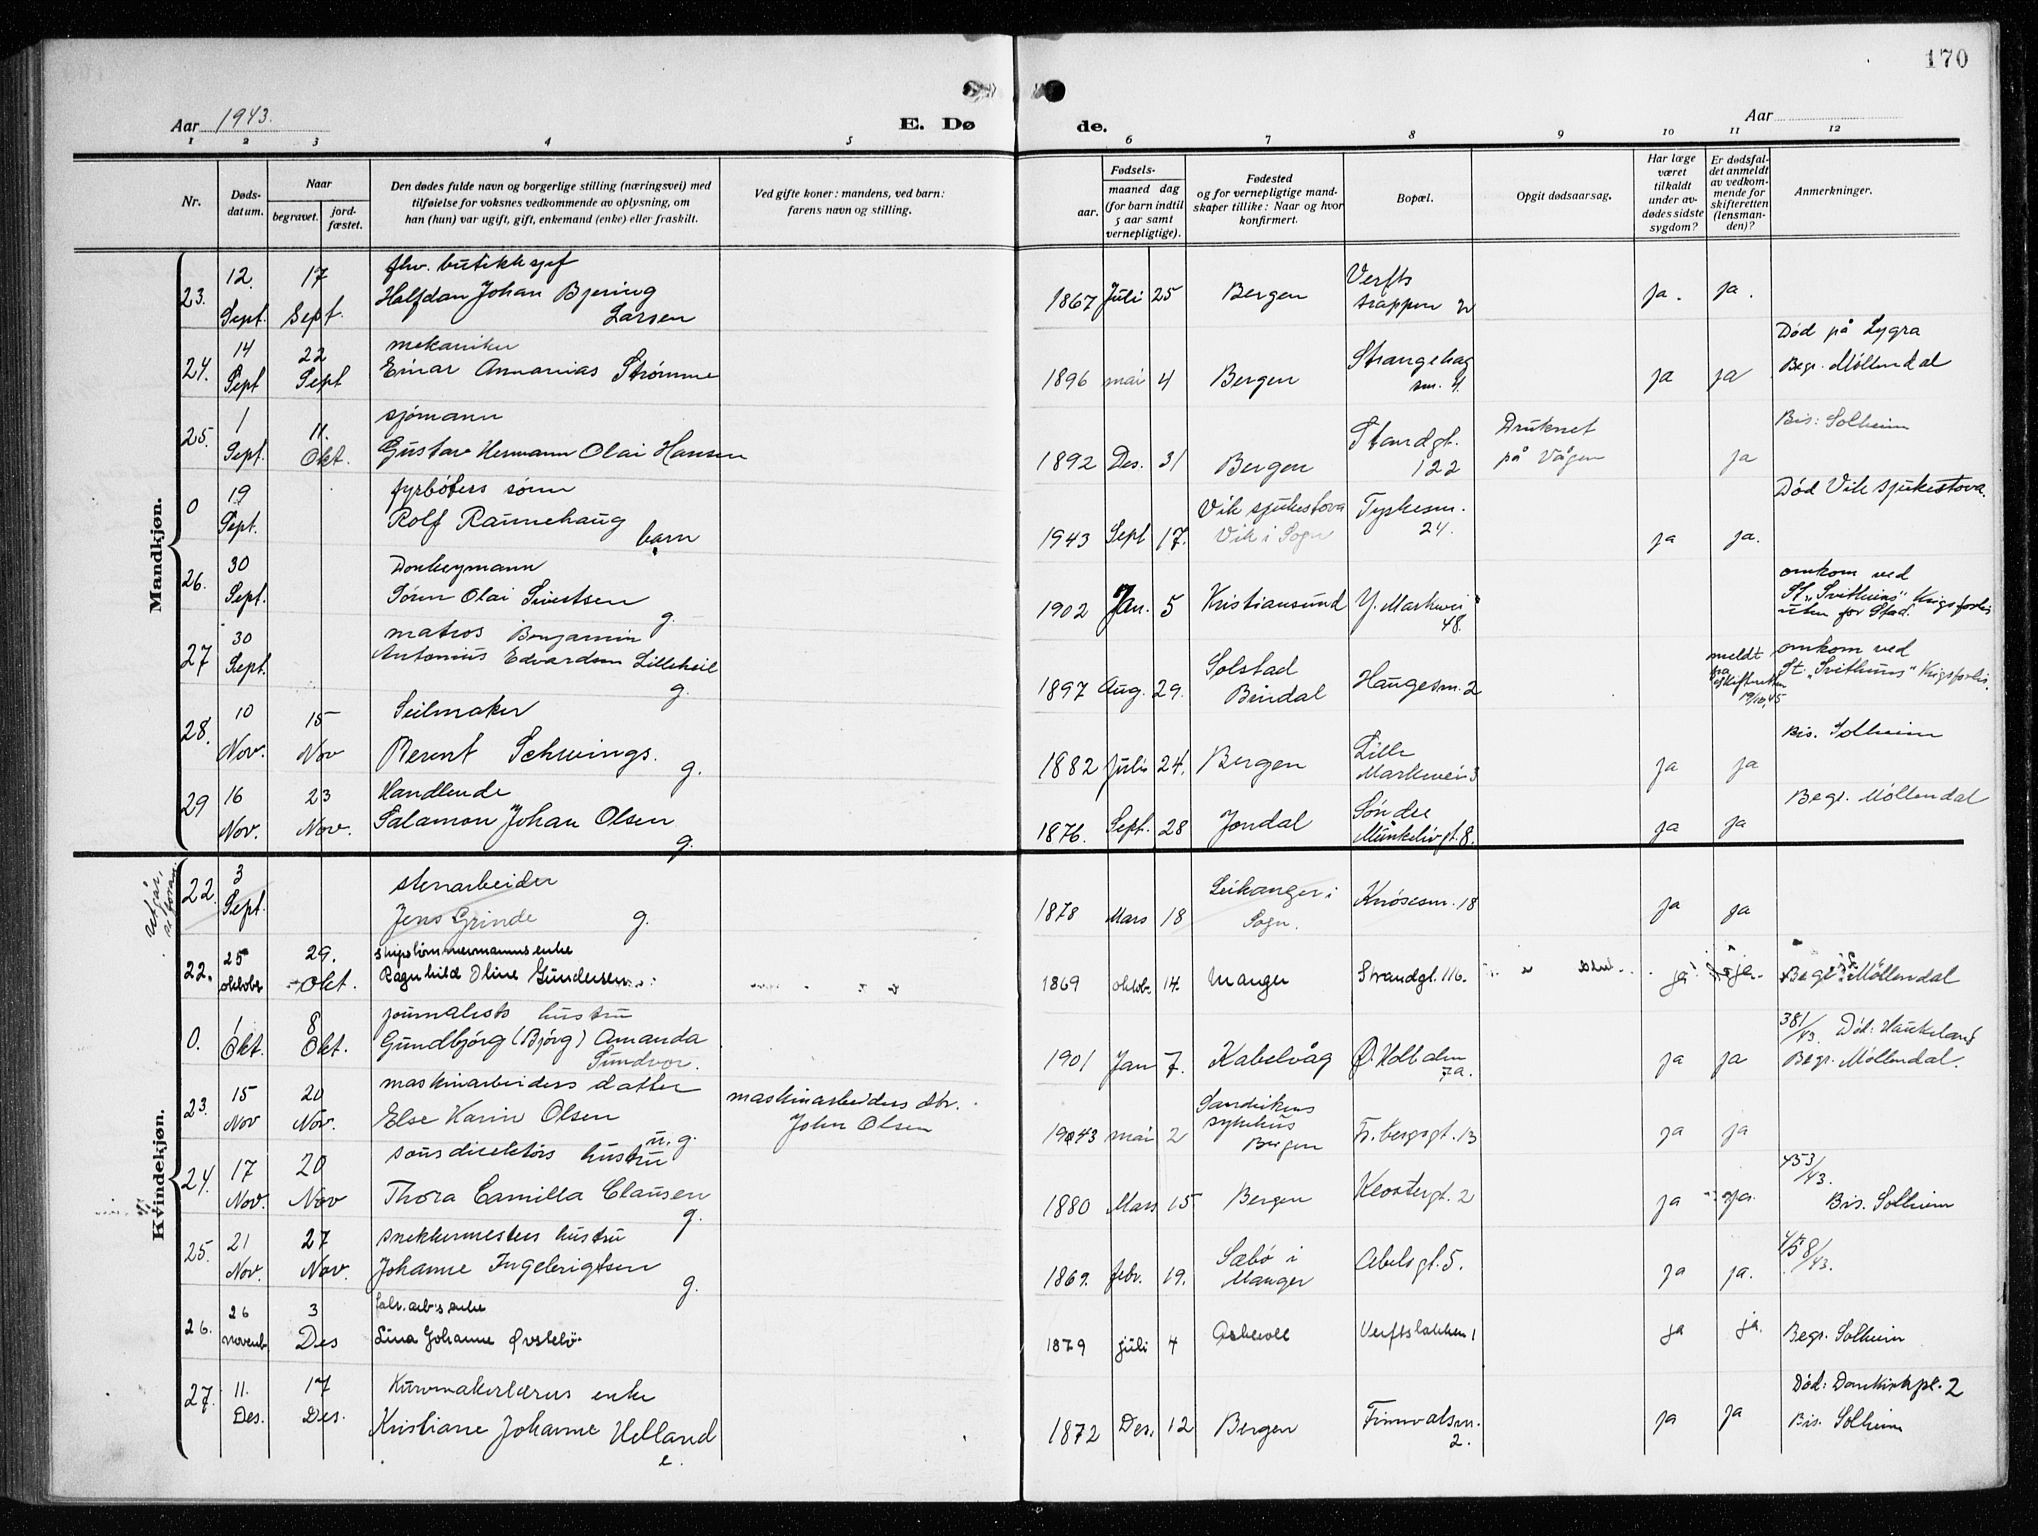 170
Aar 1943.
E. Dø de.
Aar
1 2 3 4 5 6 7 8 9 10 11 12
Nr.
Døds-
datum.
Naar
begravet.
jord-
fæstet.
Den dødes fulde navn og borgerlige stilling (næringsvei) med
tilføielse for voksnes vedkommende av oplysning, om
han (hun) var ugift, gift, enkemand (enke) eller fraskilt.
Ved gifte koner: mandens, ved barn:
farens navn og stilling.
Fødsels-
aar.
maaned dag
(for barn indtil
5 aar samt
vernepligtige).
Fødested
og for vernepligtige mand-
skaper tillike: Naar og hvor
konfirmert.
Bopæl.
Opgit dødsaarsag.
Har læge
været
tilkaldt
under av-
dødes sidste
sygdom?
Er dødsfal-
det anmeldt
av vedkom-
mende for
skifteretten
(lensman-
den)?
Anmerkninger.
Mandkjøn.
fhv. butikksjef
23. 12. Sept. 17 Sept. Halfdan Johan Bjering
Larsen
1867 Juli 25 Bergen Verfts
trappen 2 ja. ja.
mekaniker
24. 14 Sept 22 Sept Einar Annanias Strømme
1896 mai 4 Bergen Strangehag
sm. 4. ja ja Død på Lygra
Begr. Møllendal
sjømann
25. 1 Sept. 11. Okt. Gustav Hermann Olai Hansen
1892 Des. 31 Bergen Strandgt.
122 Druknet
på Vågen ja Bis: Solheim
fyrbøters sønn
0 19 Sept. Rolf Raunehaug
barn
1943 Sept 17. Vik sjukestova
Vik i Sogn Tyskesm.
24. ja ja. Død Vik sjukestova.
Donkeymann
26. 30 Sept. Sønn Olai Sivertsen
g.
1902 Jan. 5 Kristiansund Y. Markvei
48. omkom ved
St. "Svithuns" Krigsforlis
uten for Stad.
matros Benjamin
27 30 Sept. Antonius Edvardsen Lilleheil
g.
1897 Aug. 29. Solstad
Bindal Haugesm. 2 meldt
fra
skifteretten
19/10,45 omkom ved
St. "Svithuns" Krigsforlis.
Seilmaker
28. 10 Nov. 15 Nov Berent Schwings.
g.
1882 Juli 24. Bergen Lille
Markvei 3 ja ja Bis. Solheim
Handlende
29 16 Nov. 23 Nov. Salamon Johan Olsen
g.
1876. Sept. 28 Jondal Søndre
Munkelivgt. 8. ja ja Begr. Møllendal
Kvindekjøn.
stenarbeider
22. 3 Sept. Jens Grinde g.
1878 Mars 18 Leikanger i
Sogn. Knøsesm. 18 ja ja
skipstømmermanns enke
22. 25 oktobr 29. Okt. Ragnhild Oline Gundersen
1869 oktob. 14. Manger Strandgt. 116. ja ja. Begr. Møllendal
journalists hustru
0. 1 Okt. 8 Okt. Gundbjørg (Bjørg) Amanda
Sundvor.
1901 Jan 7. Kabelvåg Ø. Holbalm
7a. ja ja 381/43. Død: Haukeland
Begr. Møllendal.
maskinarbeiders datter
23. 15 Nov 20 Nov. Else Karin Olsen
u. g.
maskinarbeiders dtr.
John Olsen
1943 mai 2 Sandvikens
sykehus
Bergen Fr. bergsgt. 13 ja ja
sousdirektørs hustru
24. 17 Nov. 20 Nov Thora Camilla Clausen
g.
1880 Mars 15 Bergen Klostergt. 2 ja ja. 453/43.
Bis. Solheim
snekkermesters hustru
25. 21 Nov. 27 Nov. Johanne Ingebrigtsen
g.
1869. febr. 19. Sæbø i
Manger Abelsgt. 5. ja ja. 458/43.
fabr. arb's enke
26. 26 novemb 3 Des Lina Johanne Øvstebø
1879 juli 4 Askvoll Verftsbakken 1 ja ja. Begr. Solheim
Kurvmakerlærers enke
27. 11. Des. 17 Des. Kristiane Johanne Helland
e.
1872 Des. 12 Bergen Finnvalsm.
2. ja ja Død: Donkirkpl. 2
Bis. Solheim